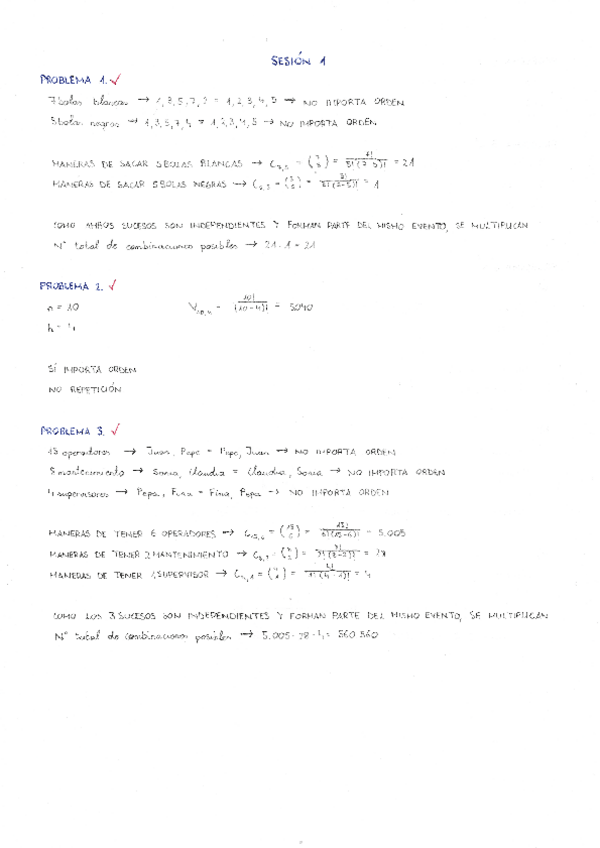 SESIÓN 1
PROBLEMA 1. ✓
7 bolas blancas → 1,3,5,7,2 = 1,2,3,4,5 → NO IMPORTA ORDEN
5 bolas negras → 1,3,5,7,4 = 1,2,3,4,5 → NO IMPORTA ORDEN
MANERAS DE SACAR 5 BOLAS BLANCAS → = 21
MANERAS DE SACAR 5 BOLAS NEGRAS → = 1
COMO AMBOS SUCESOS SON INDEPENDIENTES Y FORMAN PARTE DEL MISMO EVENTO, SE MULTIPLICAN
Nº total de combinaciones posibles → 21 · 1 = 21
PROBLEMA 2. ✓
n = 10 V10,4 = 10! / (10-4)! = 5040
SÍ IMPORTA ORDEN
NO REPETICIÓN
PROBLEMA 3. ✓
15 operadores → Juan, Pepe = Pepe, Juan → NO IMPORTA ORDEN
8 mantenimiento → Sonia, Claudia = Claudia, Sonia → NO IMPORTA ORDEN
4 supervisores → Pepa, Fina = Fina, Pepa → NO IMPORTA ORDEN
MANERAS DE TENER 6 OPERADORES → = 5.005
MANERAS DE TENER 2 MANTENIMIENTO → = 28
MANERAS DE TENER 1 SUPERVISOR → = 4
COMO LOS 3 SUCESOS SON INDEPENDIENTES Y FORMAN PARTE DEL MISMO EVENTO, SE MULTIPLICAN
Nº total de combinaciones posibles → 5.005 · 28 · 4 = 560 560